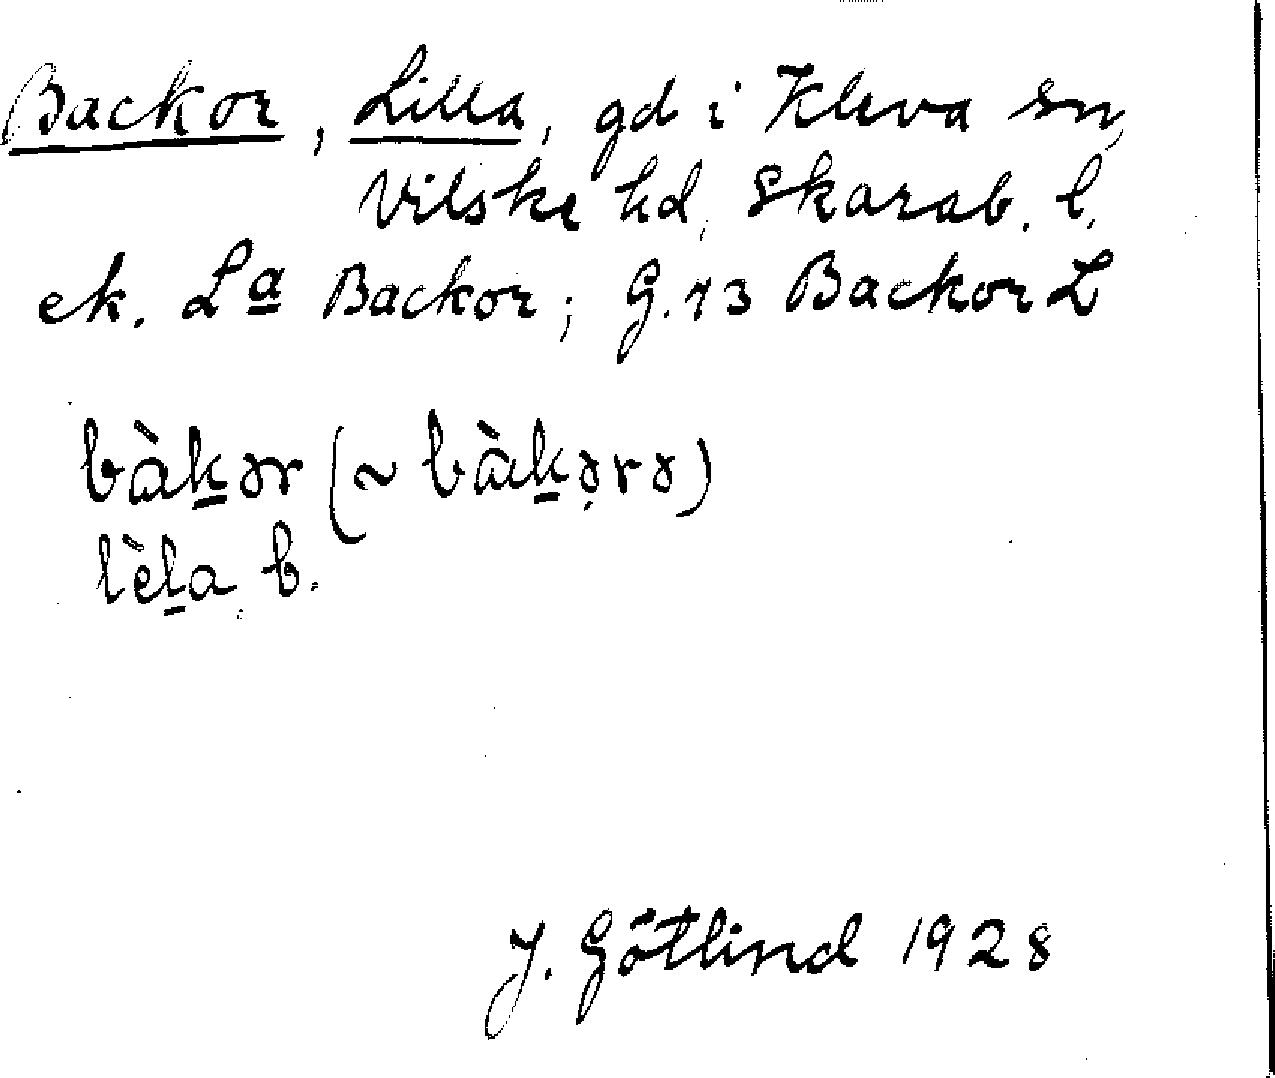 Backor, Lilla, gd i Kleva sn,
Vilske hd, Skarab. l.
ek. La Backor; G.73 Backor L
bàk̠ər (~ bàk̠ə̣rə)
lèl̠a b.
J. Götlind 1928